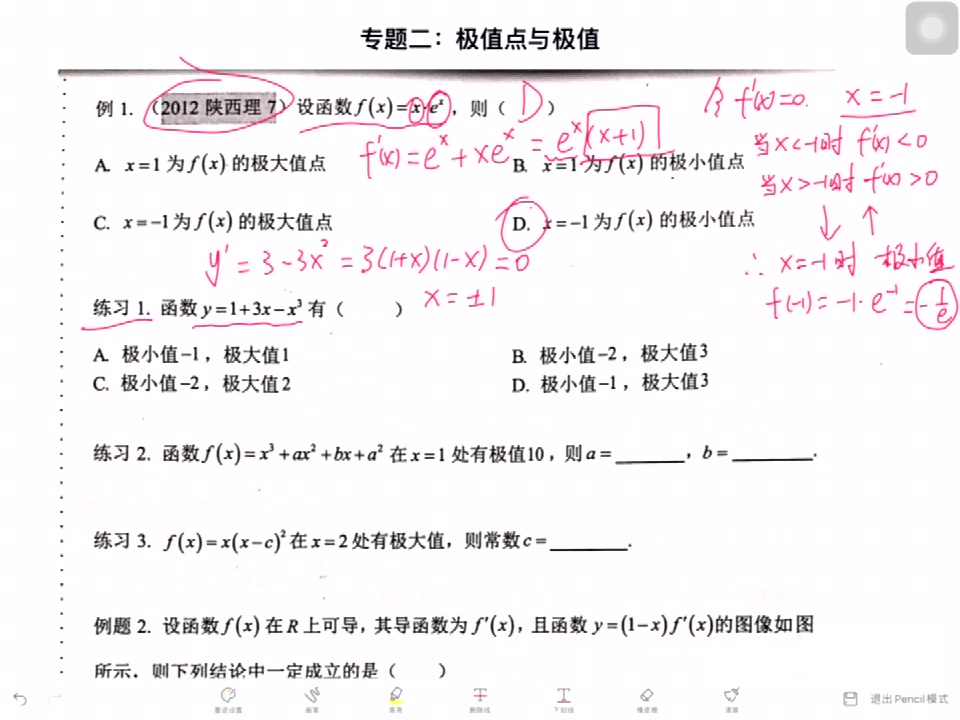 专题二：极值点与极值
例 1.（2012 陕西理 7）设函数 f(x)=x·eˣ，则（ D ）
令 f'(x)=0. x=-1
f'(x)=eˣ+xeˣ=eˣ(x+1)
当x<-1时 f'(x)<0
A. x=1 为 f(x) 的极大值点 B. x=1 为 f(x) 的极小值点
当x>-1时 f'(x)>0
C. x=-1 为 f(x) 的极大值点 D. x=-1 为 f(x) 的极小值点
↓ ↑
y'=3-3x²=3(1+x)(1-x)=0
∴ x=-1时 极小值
x=±1
f(-1)=-1·e⁻¹=-1/e
练习 1. 函数 y=1+3x-x³ 有（ ）
A. 极小值-1，极大值1 B. 极小值-2，极大值3
C. 极小值-2，极大值2 D. 极小值-1，极大值3
练习 2. 函数 f(x)=x³+ax²+bx+a² 在 x=1 处有极值10，则 a=______，b=______.
练习 3. f(x)=x(x-c)² 在 x=2 处有极大值，则常数 c=______.
例题 2. 设函数 f(x) 在 R 上可导，其导函数为 f'(x)，且函数 y=(1-x)f'(x)的图像如图
所示，则下列结论中一定成立的是（ ）
画笔 高亮 删除线 下划线 橡皮擦 清屏 退出 Pencil 模式